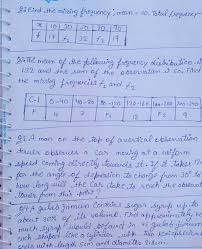 Q2 Find the missing frequency, mean = 50. Total frequency
x 10 30 50 70 90
f 17 F1 32 F2 19
The mean of the following frequency distribution is
132 and the sum of the observation is 50. Find
the missing frequency F1 and F2
C-I 0-40 40-80 80-120 120-160 160-200 200-240
F 4 7
A man on the top of a vertical observation
tower observes a car moving at a uniform
speed coming directly towards it. If it takes 12
for the angle of depression to change from 30° to
how long will the car take to reach the observation
tower from this
A gulab jamun contains sugar syrup up to
about 30% of its volume. Find approximately how
much syrup would be found in 45 gulab jamun
each shaped like a cylinder with two hemispherical
ends with length 5cm and diameter 2.8cm